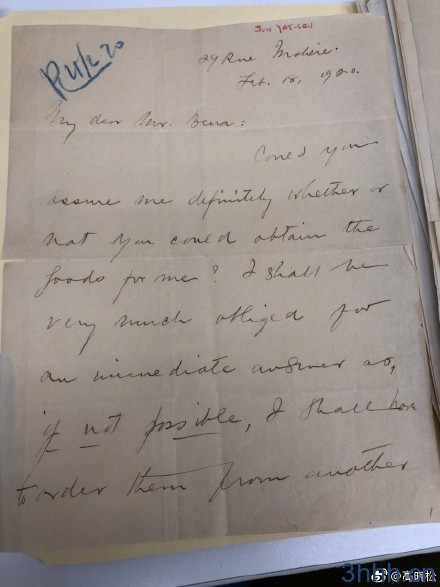 SUN YAT-SEN
R 4/2 20
29 Rue Molière.
Feb. 18, 1920.
My dear Mr. Bena:
Could you
assure me definitely whether or
not you could obtain the
goods for me? I shall be
very much obliged for
an immediate answer as,
if not possible, I shall have
to order them from another
@高晓松
3hbh.cn